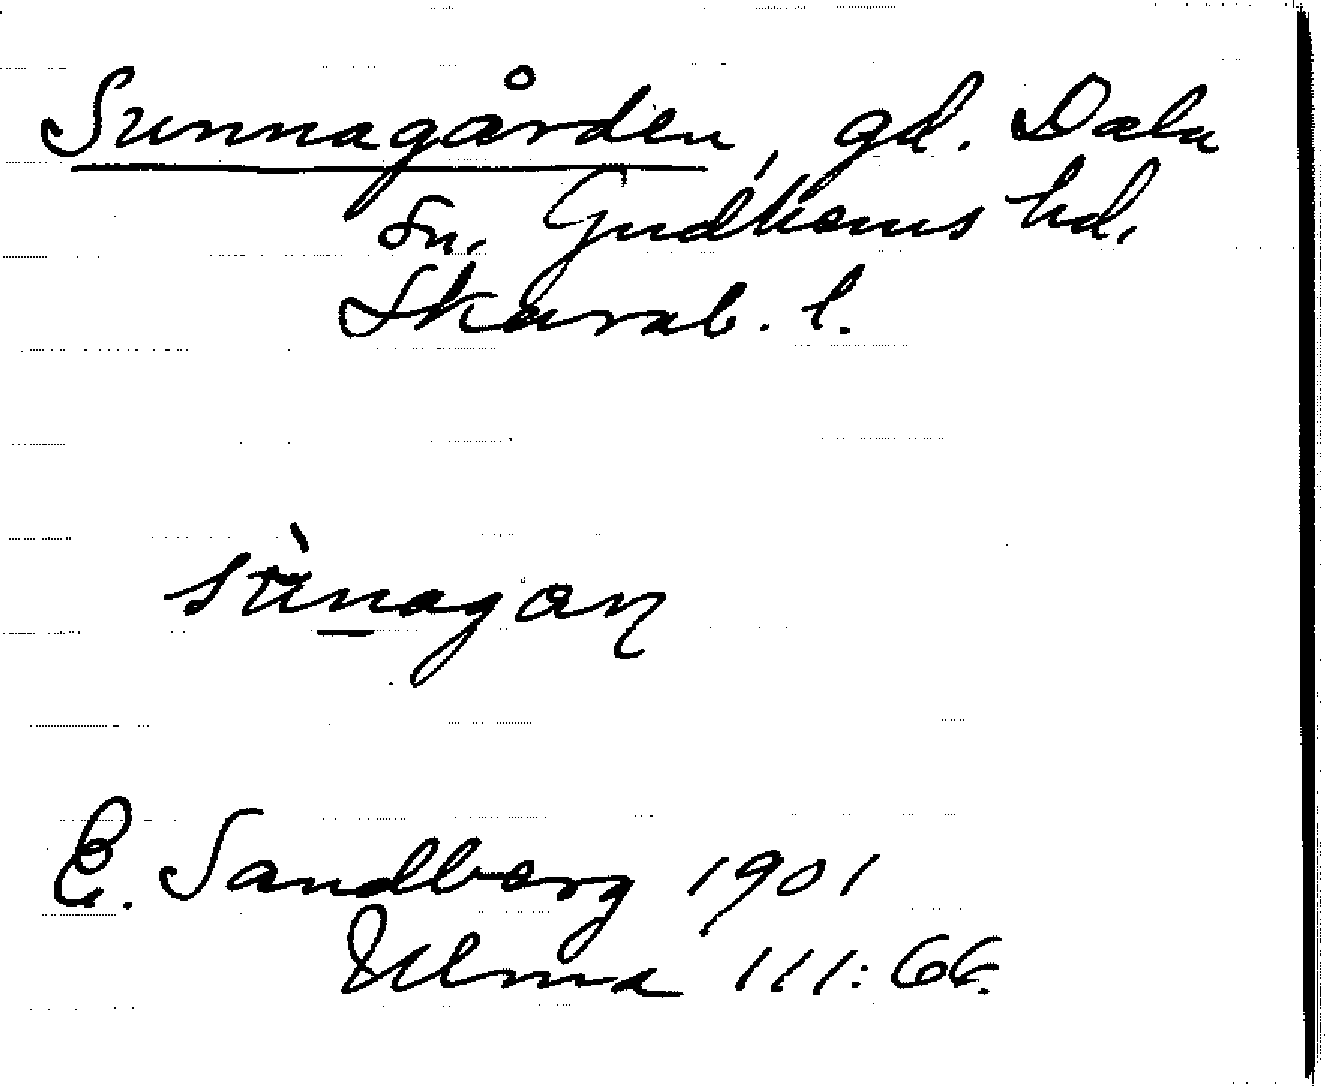 Sunnagården, gd. Dala
sn. Gudhems hd,
Skarab. l.
E. Sandberg 1901
Ulma 111:66.